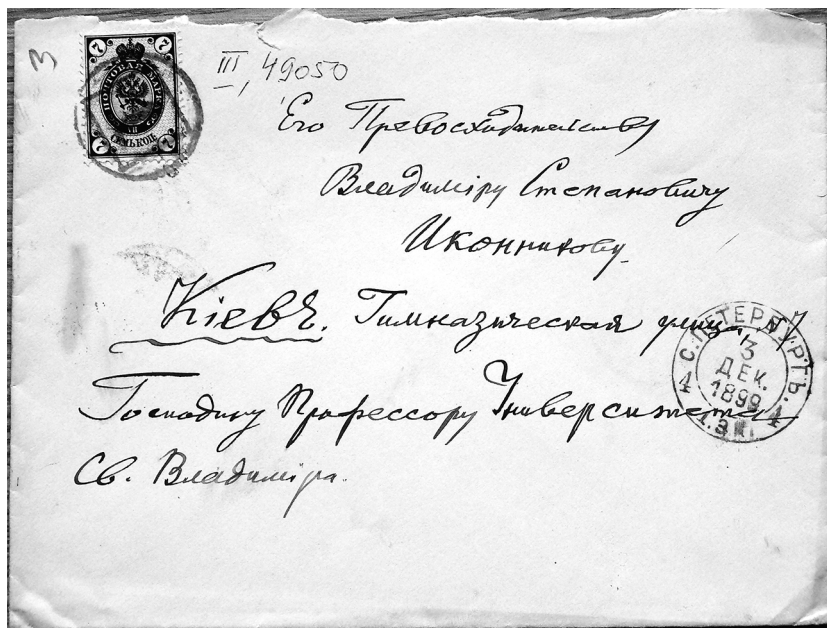 З
7 7
ПОЧТОВАЯ МАРКА
СЕМЬ КОП.
7 7
III, 49050
Его Превосходительству
Владиміру Степановичу
Иконникову.
Кіевъ. Гимназическая улица, 7
Господину Профессору Университета
Св. Владиміра.
С. ПЕТЕРБУРГЪ.
3
ДЕК.
1899
4 4